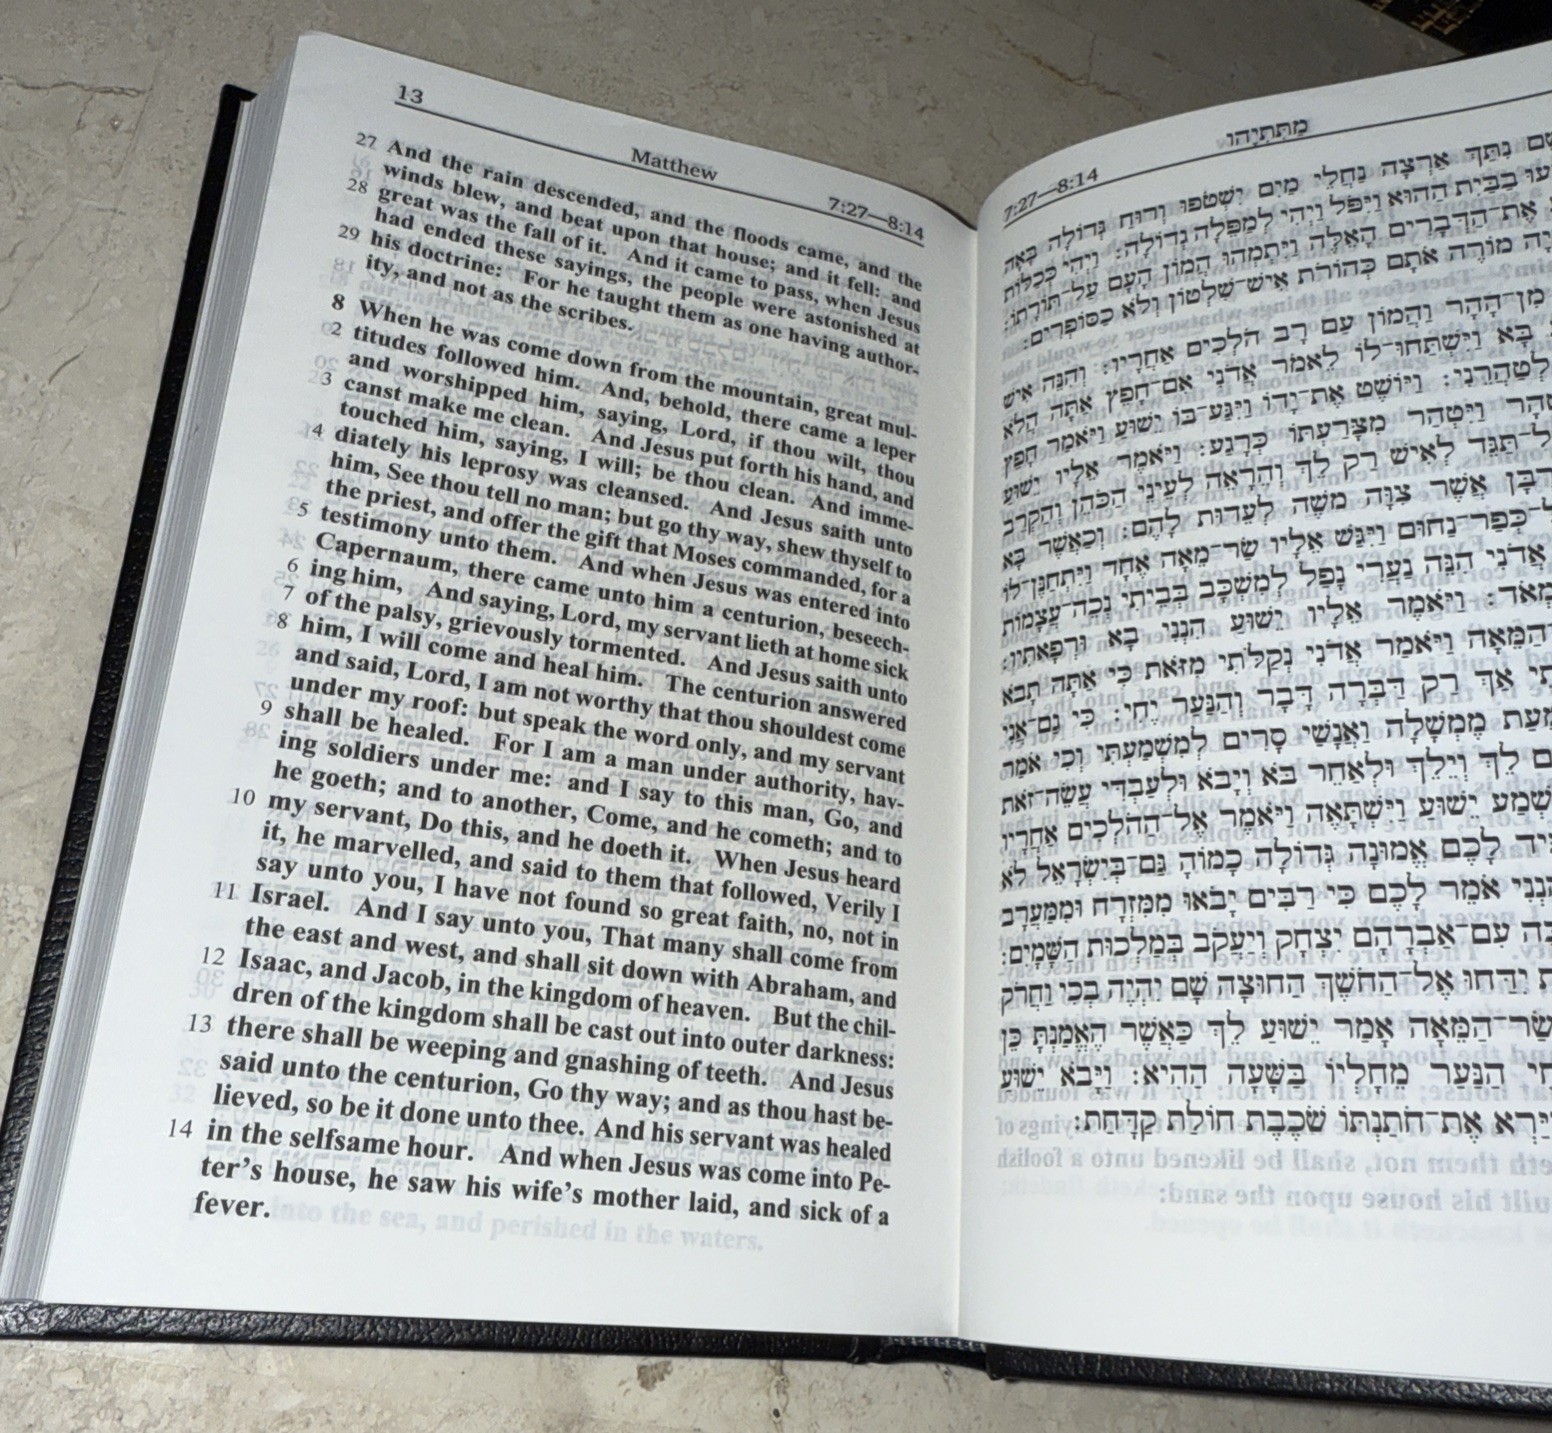 13
Matthew
7:27—8:14
27 And the rain descended, and the floods came, and the
winds blew, and beat upon that house; and it fell: and
28 great was the fall of it. And it came to pass, when Jesus
had ended these sayings, the people were astonished at
29 his doctrine: For he taught them as one having author-
ity, and not as the scribes.
8 When he was come down from the mountain, great mul-
2 titudes followed him. And, behold, there came a leper
and worshipped him, saying, Lord, if thou wilt, thou
3 canst make me clean. And Jesus put forth his hand, and
touched him, saying, I will; be thou clean. And imme-
4 diately his leprosy was cleansed. And Jesus saith unto
him, See thou tell no man; but go thy way, shew thyself to
the priest, and offer the gift that Moses commanded, for a
5 testimony unto them. And when Jesus was entered into
Capernaum, there came unto him a centurion, beseech-
6 ing him, And saying, Lord, my servant lieth at home sick
7 of the palsy, grievously tormented. And Jesus saith unto
8 him, I will come and heal him. The centurion answered
and said, Lord, I am not worthy that thou shouldest come
under my roof: but speak the word only, and my servant
9 shall be healed. For I am a man under authority, hav-
ing soldiers under me: and I say to this man, Go, and
he goeth; and to another, Come, and he cometh; and to
10 my servant, Do this, and he doeth it. When Jesus heard
it, he marvelled, and said to them that followed, Verily I
say unto you, I have not found so great faith, no, not in
11 Israel. And I say unto you, That many shall come from
the east and west, and shall sit down with Abraham, and
12 Isaac, and Jacob, in the kingdom of heaven. But the chil-
dren of the kingdom shall be cast out into outer darkness:
13 there shall be weeping and gnashing of teeth. And Jesus
said unto the centurion, Go thy way; and as thou hast be-
lieved, so be it done unto thee. And his servant was healed
14 in the selfsame hour. And when Jesus was come into Pe-
ter's house, he saw his wife's mother laid, and sick of a
fever.
מַתִּתְיָהוּ
7:27—8:14
נִתַּךְ אַרְצָה נַחֲלֵי מַיִם יִשְׁטֹפוּ וְרוּחַ גְּדוֹלָה בָּאָה
בַּבַּיִת הַהוּא וַיִּפֹּל וַיְהִי לְמַפֵּלָה גְדוֹלָה: וַיְהִי כְּכַלּוֹת
אֶת־הַדְּבָרִים הָאֵלֶּה וַיִּתְמְהוּ הֲמוֹן הָעָם עַל־תּוֹרָתוֹ:
מוֹרֶה אֹתָם כְּהוֹרֹת אִישׁ־שִׁלְטוֹן וְלֹא כַּסּוֹפְרִים:
מִן־הָהָר וַהֲמוֹן עַם רָב הֹלְכִים אַחֲרָיו: וְהִנֵּה אִישׁ
בָּא וַיִּשְׁתַּחוּ־לוֹ לֵאמֹר אֲדֹנִי אִם־חָפֵץ אַתָּה הֲלֹא
לְטַהֲרֵנִי: וַיּוֹשֶׁט אֶת־יָדוֹ וַיִּגַּע־בּוֹ יֵשׁוּעַ וַיֹּאמַר חָפֵץ
וַיִּטְהַר מִצָּרַעְתּוֹ כְּרָגַע: וַיֹּאמֶר אֵלָיו יֵשׁוּעַ
תַּגֵּד לְאִישׁ רַק לֵךְ וְהֵרָאֵה לְעֵינֵי הַכֹּהֵן וְהַקְרֵב
אֲשֶׁר צִוָּה מֹשֶׁה לְעֵדוּת לָהֶם: וְכַאֲשֶׁר בָּא
כְּפַר־נַחוּם וַיִּגַּשׁ אֵלָיו שַׂר־מֵאָה אֶחָד וַיִּתְחַנֶּן־לוֹ
אֲדֹנִי הִנֵּה נַעֲרִי נָפַל לְמִשְׁכָּב בְּבֵיתִי נְכֵה־עֲצָמוֹת
מְאֹד: וַיֹּאמֶר אֵלָיו יֵשׁוּעַ הִנְנִי בָא וּרְפָאתִיו:
הַמֵּאָה וַיֹּאמֶר אֲדֹנִי נְקַלֹּתִי מִזֹּאת כִּי אַתָּה תָבֹא
אַךְ רַק דַּבְּרָה דָּבָר וְהַנַּעַר יֶחִי: כִּי גַם־אֲנִי
מֶמְשָׁלָה וְאַנְשֵׁי סָרִים לְמִשְׁמַעְתִּי וְכִי אֹמַר
לֵךְ וְיֵלֵךְ וּלְאַחֵר בֹּא וְיָבֹא וּלְעַבְדִּי עֲשֵׂה־זֹאת
יֵשׁוּעַ וַיִּשְׁתָּאֵה וַיֹּאמֶר אֶל־הַהֹלְכִים אַחֲרָיו
לָכֶם אֱמוּנָה גְּדוֹלָה כָמוֹהָ גַּם־בְּיִשְׂרָאֵל לֹא
אֹמֵר לָכֶם כִּי רַבִּים יָבֹאוּ מִמִּזְרָח וּמִמַּעֲרָב
עִם־אַבְרָהָם יִצְחָק וְיַעֲקֹב בְּמַלְכוּת הַשָּׁמָיִם:
יִדַּחוּ אֶל־הַחֹשֶׁךְ הַחוּצָה שָׁם יִהְיֶה בְּכִי וַחֲרֹק
שַׂר־הַמֵּאָה אָמַר יֵשׁוּעַ לֵךְ כַּאֲשֶׁר הֶאֱמַנְתָּ כֵּן
הַנַּעַר מֵחָלְיוֹ בַּשָּׁעָה הַהִיא: וַיָּבֹא יֵשׁוּעַ
אֶת־חֹתַנְתּוֹ שֹׁכֶבֶת חוֹלַת קַדָּחַת: